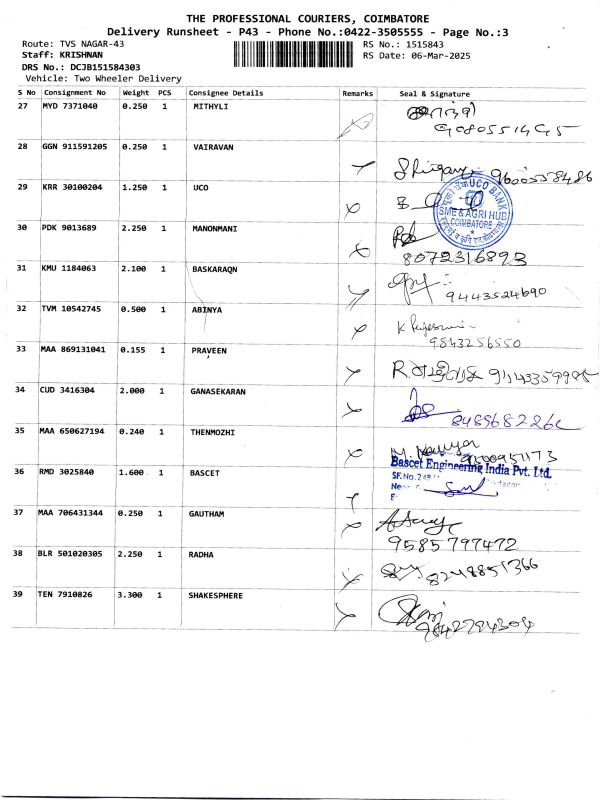 THE PROFESSIONAL COURIERS, COIMBATORE
Delivery Runsheet - P43 - Phone No.:0422-3505555 - Page No.:3
Route: TVS NAGAR-43 RS No.: 1515843
Staff: KRISHNAN RS Date: 06-Mar-2025
DRS No.: DCJB151584303
Vehicle: Two Wheeler Delivery
S No Consignment No Weight PCS Consignee Details Remarks Seal & Signature
27 MYD 7371040 0.250 1 MITHYLI
28 GGN 911591205 0.250 1 VAIRAVAN
9600558486
29 KRR 30100204 1.250 1 UCO
UCO BANK
SME & AGRI HUB
COIMBATORE
30 PDK 9013689 2.250 1 MANONMANI
8072316893
31 KMU 1184063 2.100 1 BASKARAQN
9443524690
32 TVM 10542745 0.500 1 ABINYA
9843256550
33 MAA 869131041 0.155 1 PRAVEEN
34 CUD 3416304 2.000 1 GANASEKARAN
35 MAA 650627194 0.240 1 THENMOZHI
36 RMD 3025840 1.600 1 BASCET
Bascet Engineering India Pvt. Ltd.
37 MAA 706431344 0.250 1 GAUTHAM
9585797472
38 BLR 501020305 2.250 1 RADHA
8248851366
39 TEN 7910826 3.300 1 SHAKESPHERE
9842794304